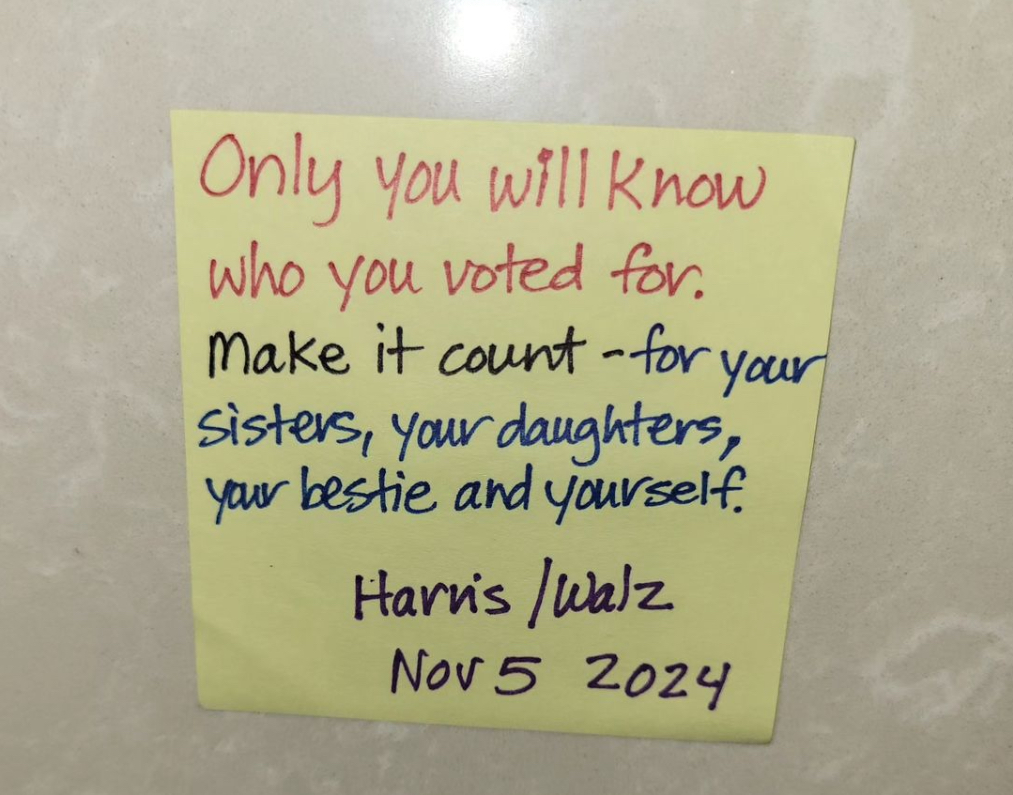 Only you will know
who you voted for.
Make it count - for your
sisters, your daughters,
your bestie and yourself.
Harris / Walz
Nov 5 2024